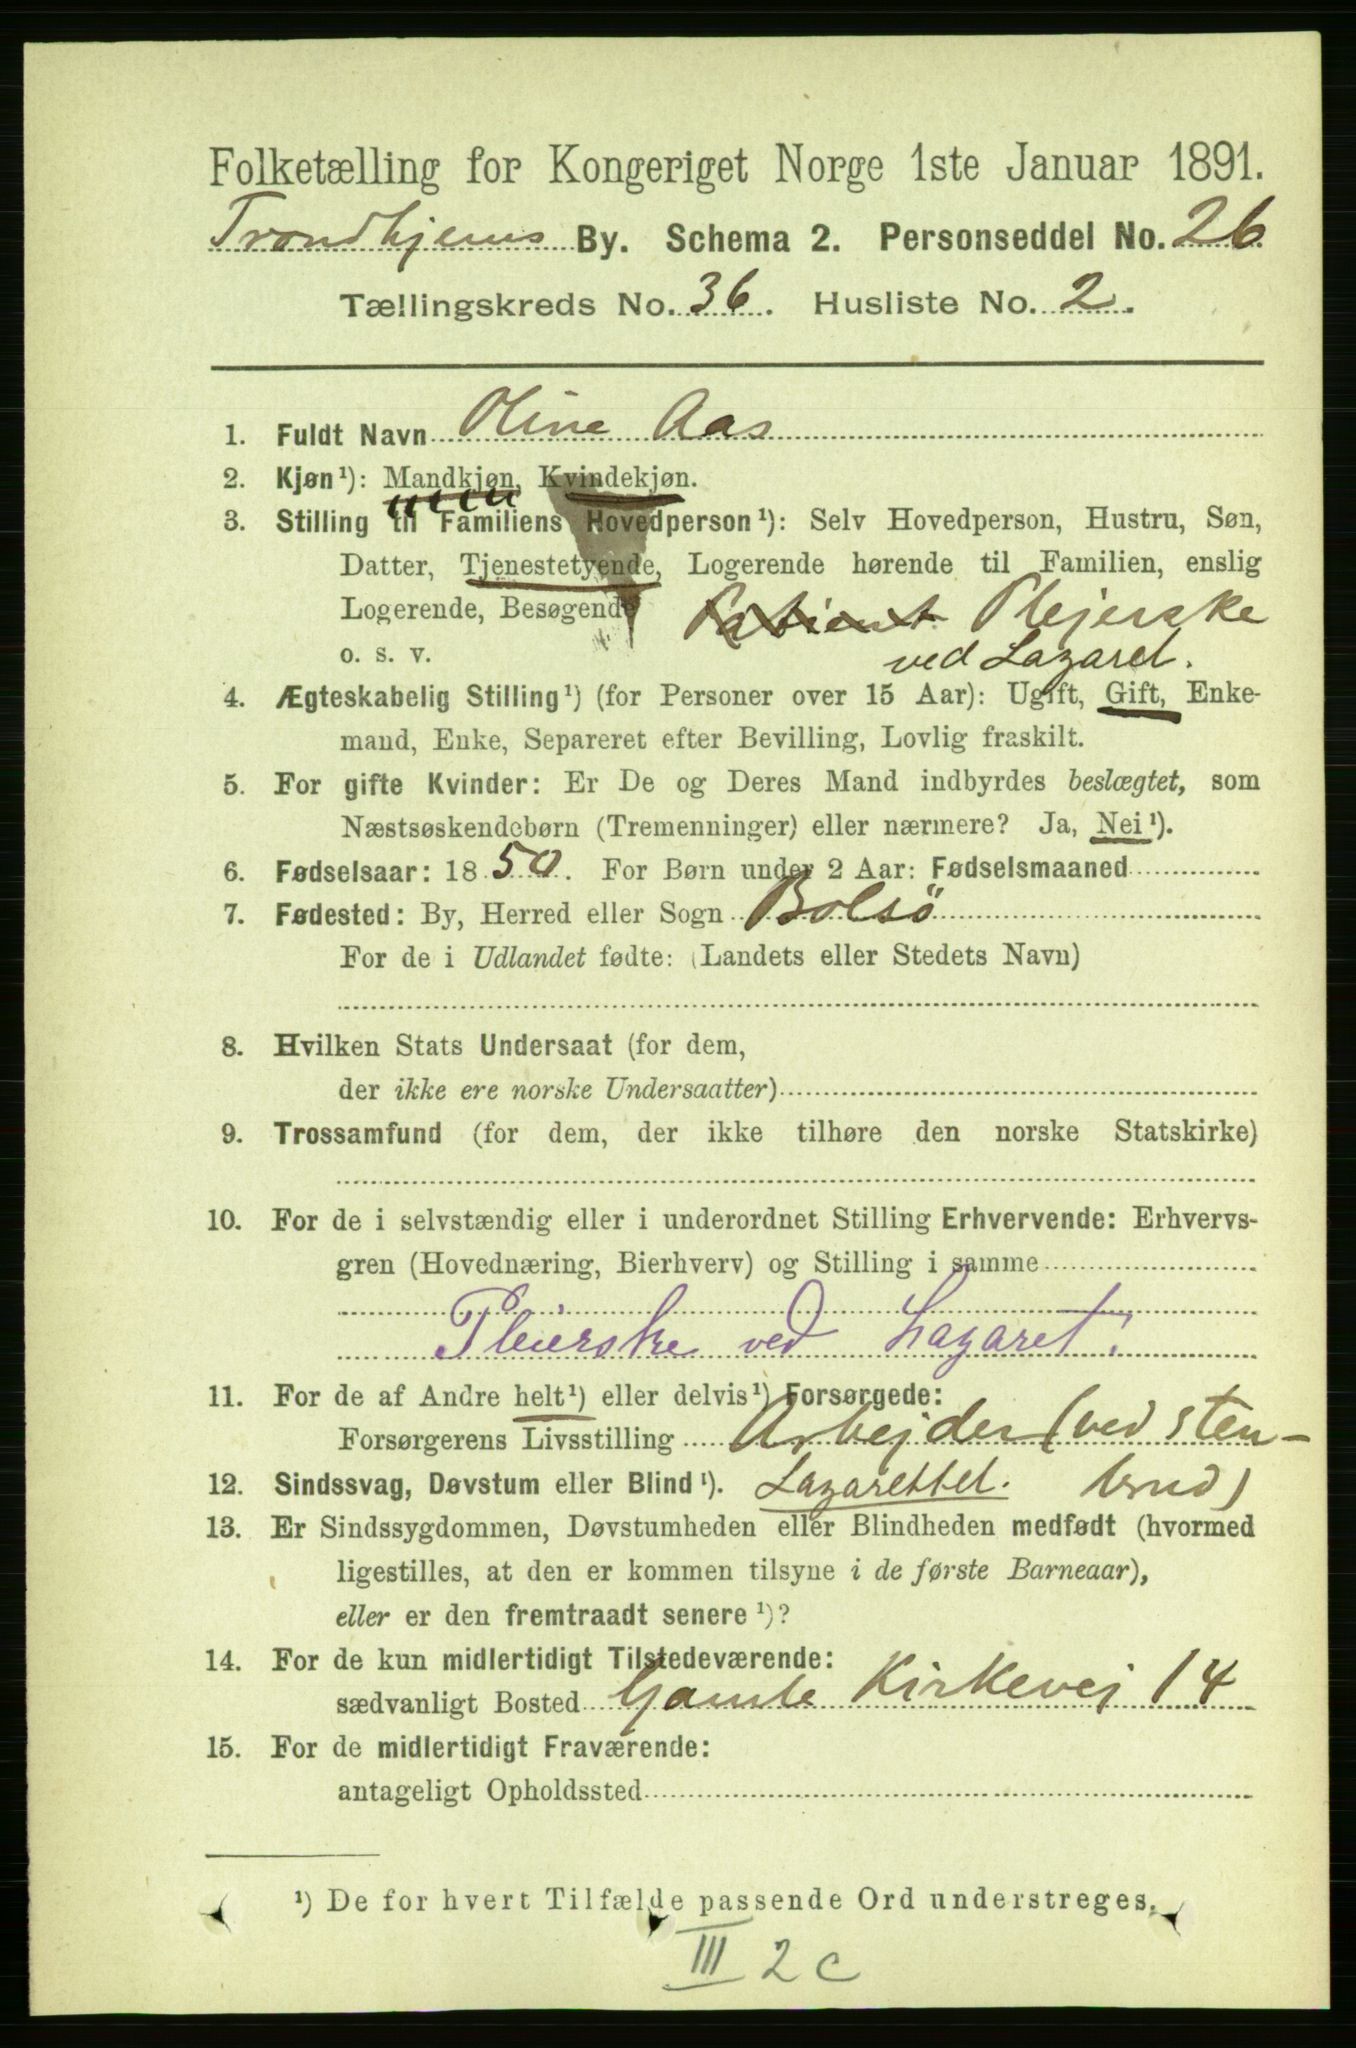 Folketælling for Kongeriget Norge 1ste Januar 1891.
Trondhjems By. Schema 2. Personseddel No. 26
Tællingskreds No. 36. Husliste No. 2.
1. Fuldt Navn Oline Aas
2. Kjøn¹): Mandkjøn, Kvindekjøn.
3. Stilling til Familiens Hovedperson¹): Selv Hovedperson, Hustru, Søn,
Datter, Tjenestetyende, Logerende hørende til Familien, enslig
Logerende, Besøgende Patient Plejerske
o. s. v. ved Lazaret.
4. Ægteskabelig Stilling¹) (for Personer over 15 Aar): Ugift, Gift, Enke-
mand, Enke, Separeret efter Bevilling, Lovlig fraskilt.
5. For gifte Kvinder: Er De og Deres Mand indbyrdes beslægtet, som
Næstsøskendebørn (Tremenninger) eller nærmere? Ja, Nei¹).
6. Fødselsaar: 1850. For Børn under 2 Aar: Fødselsmaaned
7. Fødested: By, Herred eller Sogn Bolsö
For de i Udlandet fødte: (Landets eller Stedets Navn)
8. Hvilken Stats Undersaat (for dem,
der ikke ere norske Undersaatter)
9. Trossamfund (for dem, der ikke tilhøre den norske Statskirke)
10. For de i selvstændig eller i underordnet Stilling Erhvervende: Erhvervs-
gren (Hovednæring, Bierhverv) og Stilling i samme
Pleierske ved Lazaret.
11. For de af Andre helt¹) eller delvis¹) Forsørgede:
Forsørgerens Livsstilling Arbejder (ved sten-
12. Sindssvag, Døvstum eller Blind¹). Lazarettet. brud)
13. Er Sindssygdommen, Døvstumheden eller Blindheden medfødt (hvormed
ligestilles, at den er kommen tilsyne i de første Barneaar),
eller er den fremtraadt senere¹)?
14. For de kun midlertidigt Tilstedeværende:
sædvanligt Bosted Gamle Kirkevej 14
15. For de midlertidigt Fraværende:
antageligt Opholdssted
¹) De for hvert Tilfælde passende Ord understreges.
III 2 c